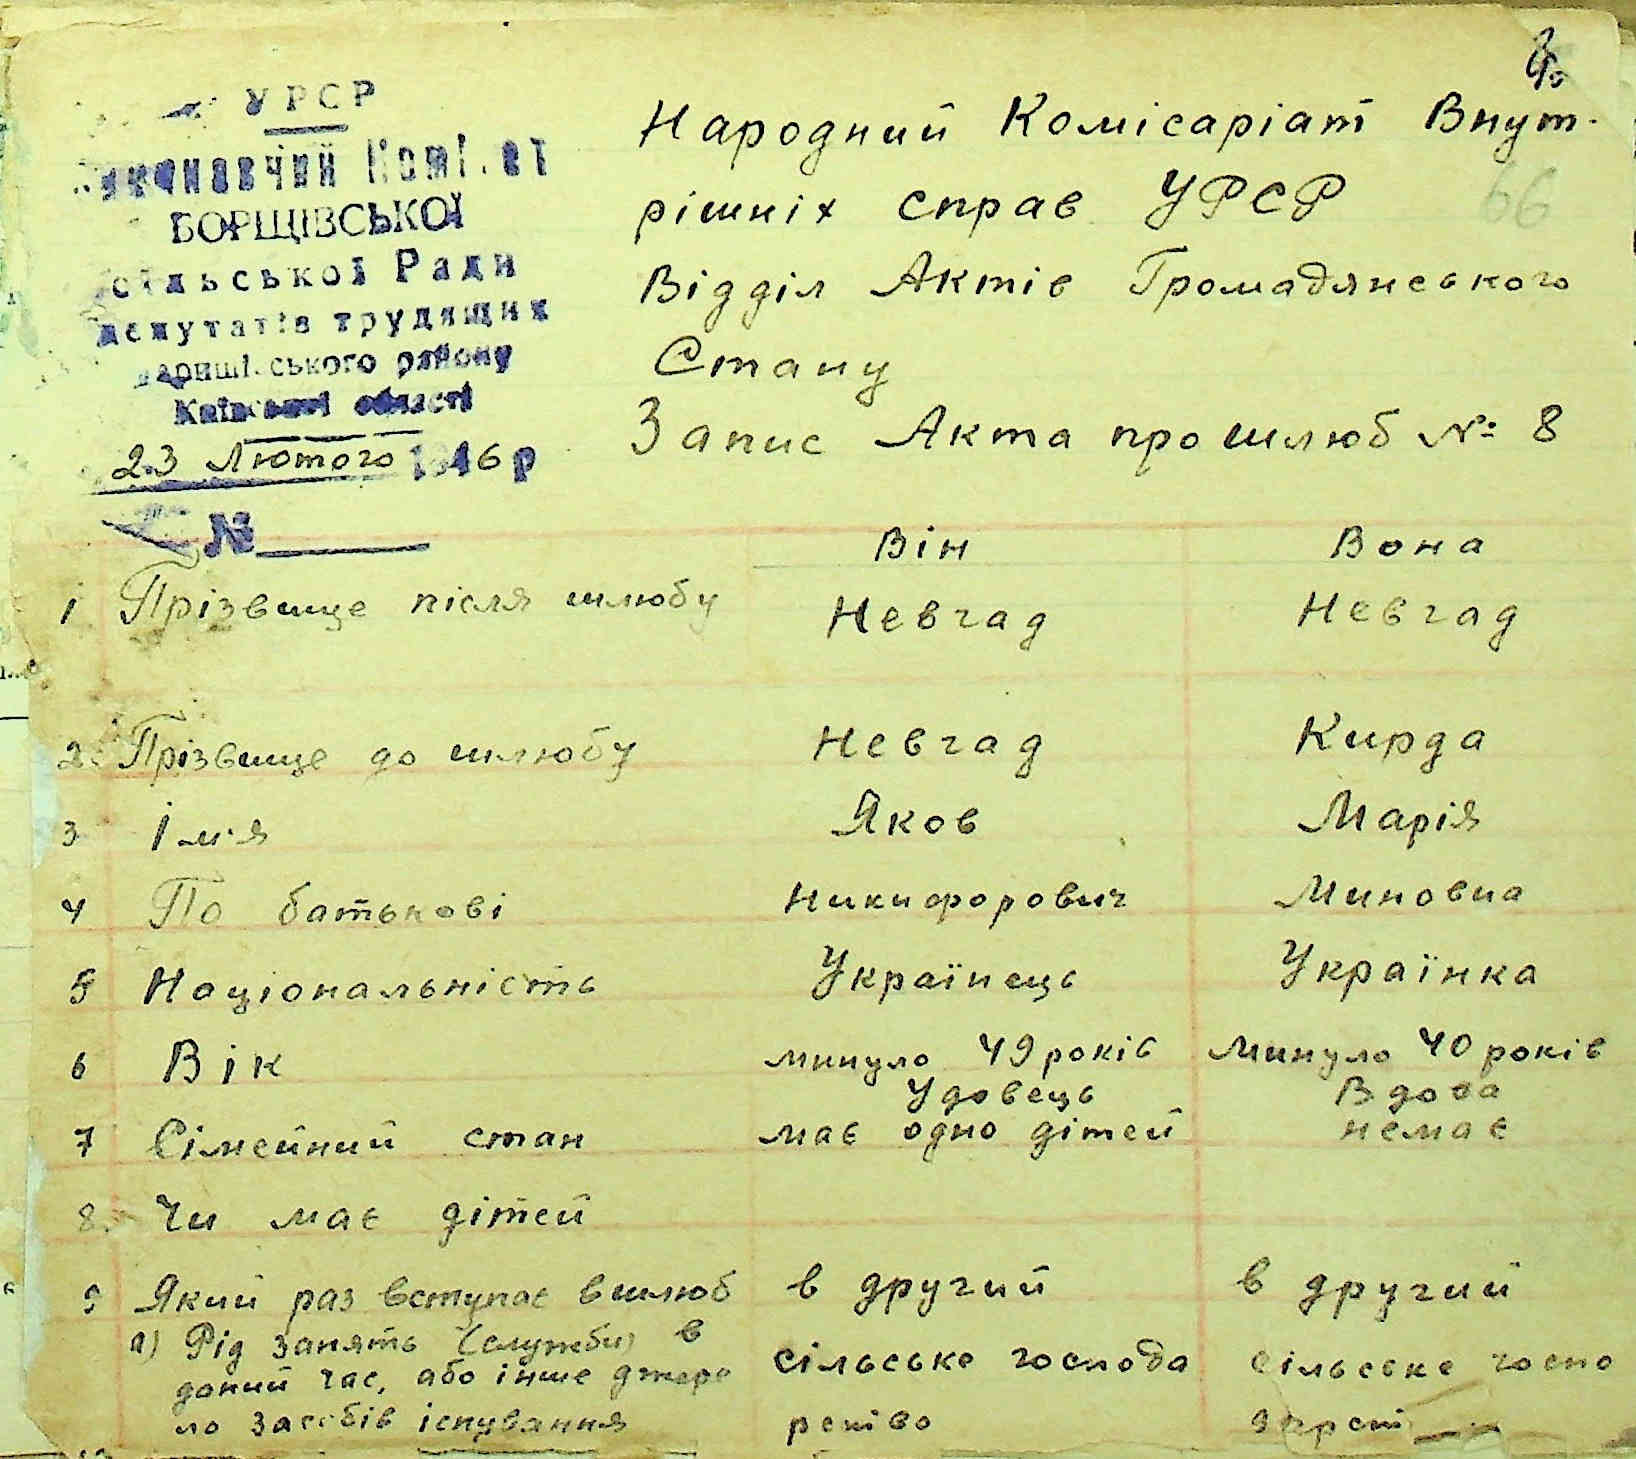 УРСР
БОРЩІВСЬКОЇ
сільської Ради
депутатів трудящих
району
Київської області
23 Лютого 1946 р
№
66
Народний Комісаріат Внут-
рішніх справ УРСР
Відділ Актів Громадянського
Стану
Запис Акта про шлюб № 8
Він Вона
1 Прізвище після шлюбу Невгад Невгад
2 Прізвище до шлюбу Невгад Кирда
3 Ім'я Яков Марія
4 По батькові Никифорович Миновна
5 Національність Українець Українка
6 Вік минуло 49 років Минуло 40 років
Удовець Вдова
7 Сімейний стан має одно дітей немає
8. Чи має дітей
9 Який раз вступає в шлюб в другий в другий
а) Рід занять (служби) в
даний час, або інше джере сільське господа сільське госпо
ло засобів існування рство